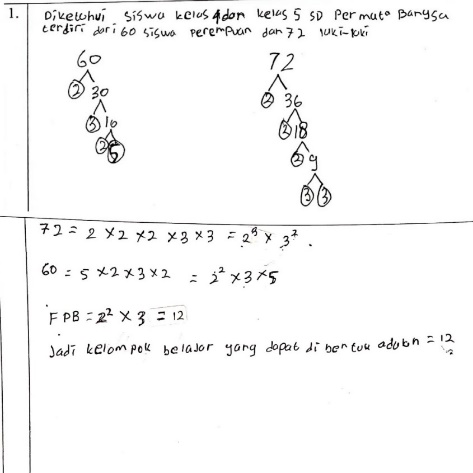 1. Diketahui siswa kelas 4 dan kelas 5 SD Permata Bangsa
terdiri dari 60 siswa perempuan dan 72 laki-laki
60 72
2 30 2 36
3 10 2 18
2 5 2 9
3 3
72 = 2 × 2 × 2 × 3 × 3 = 2³ × 3² .
60 = 5 × 2 × 3 × 2 = 2² × 3 × 5
FPB = 2² × 3 = 12
Jadi kelompok belajar yang dapat di bentuk adalah = 12